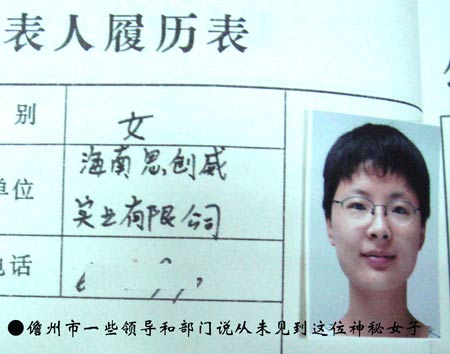 表人履历表
别
女
单位
海南思创威
实业有限公司
电话
●儋州市一些领导和部门说从未见到这位神秘女子